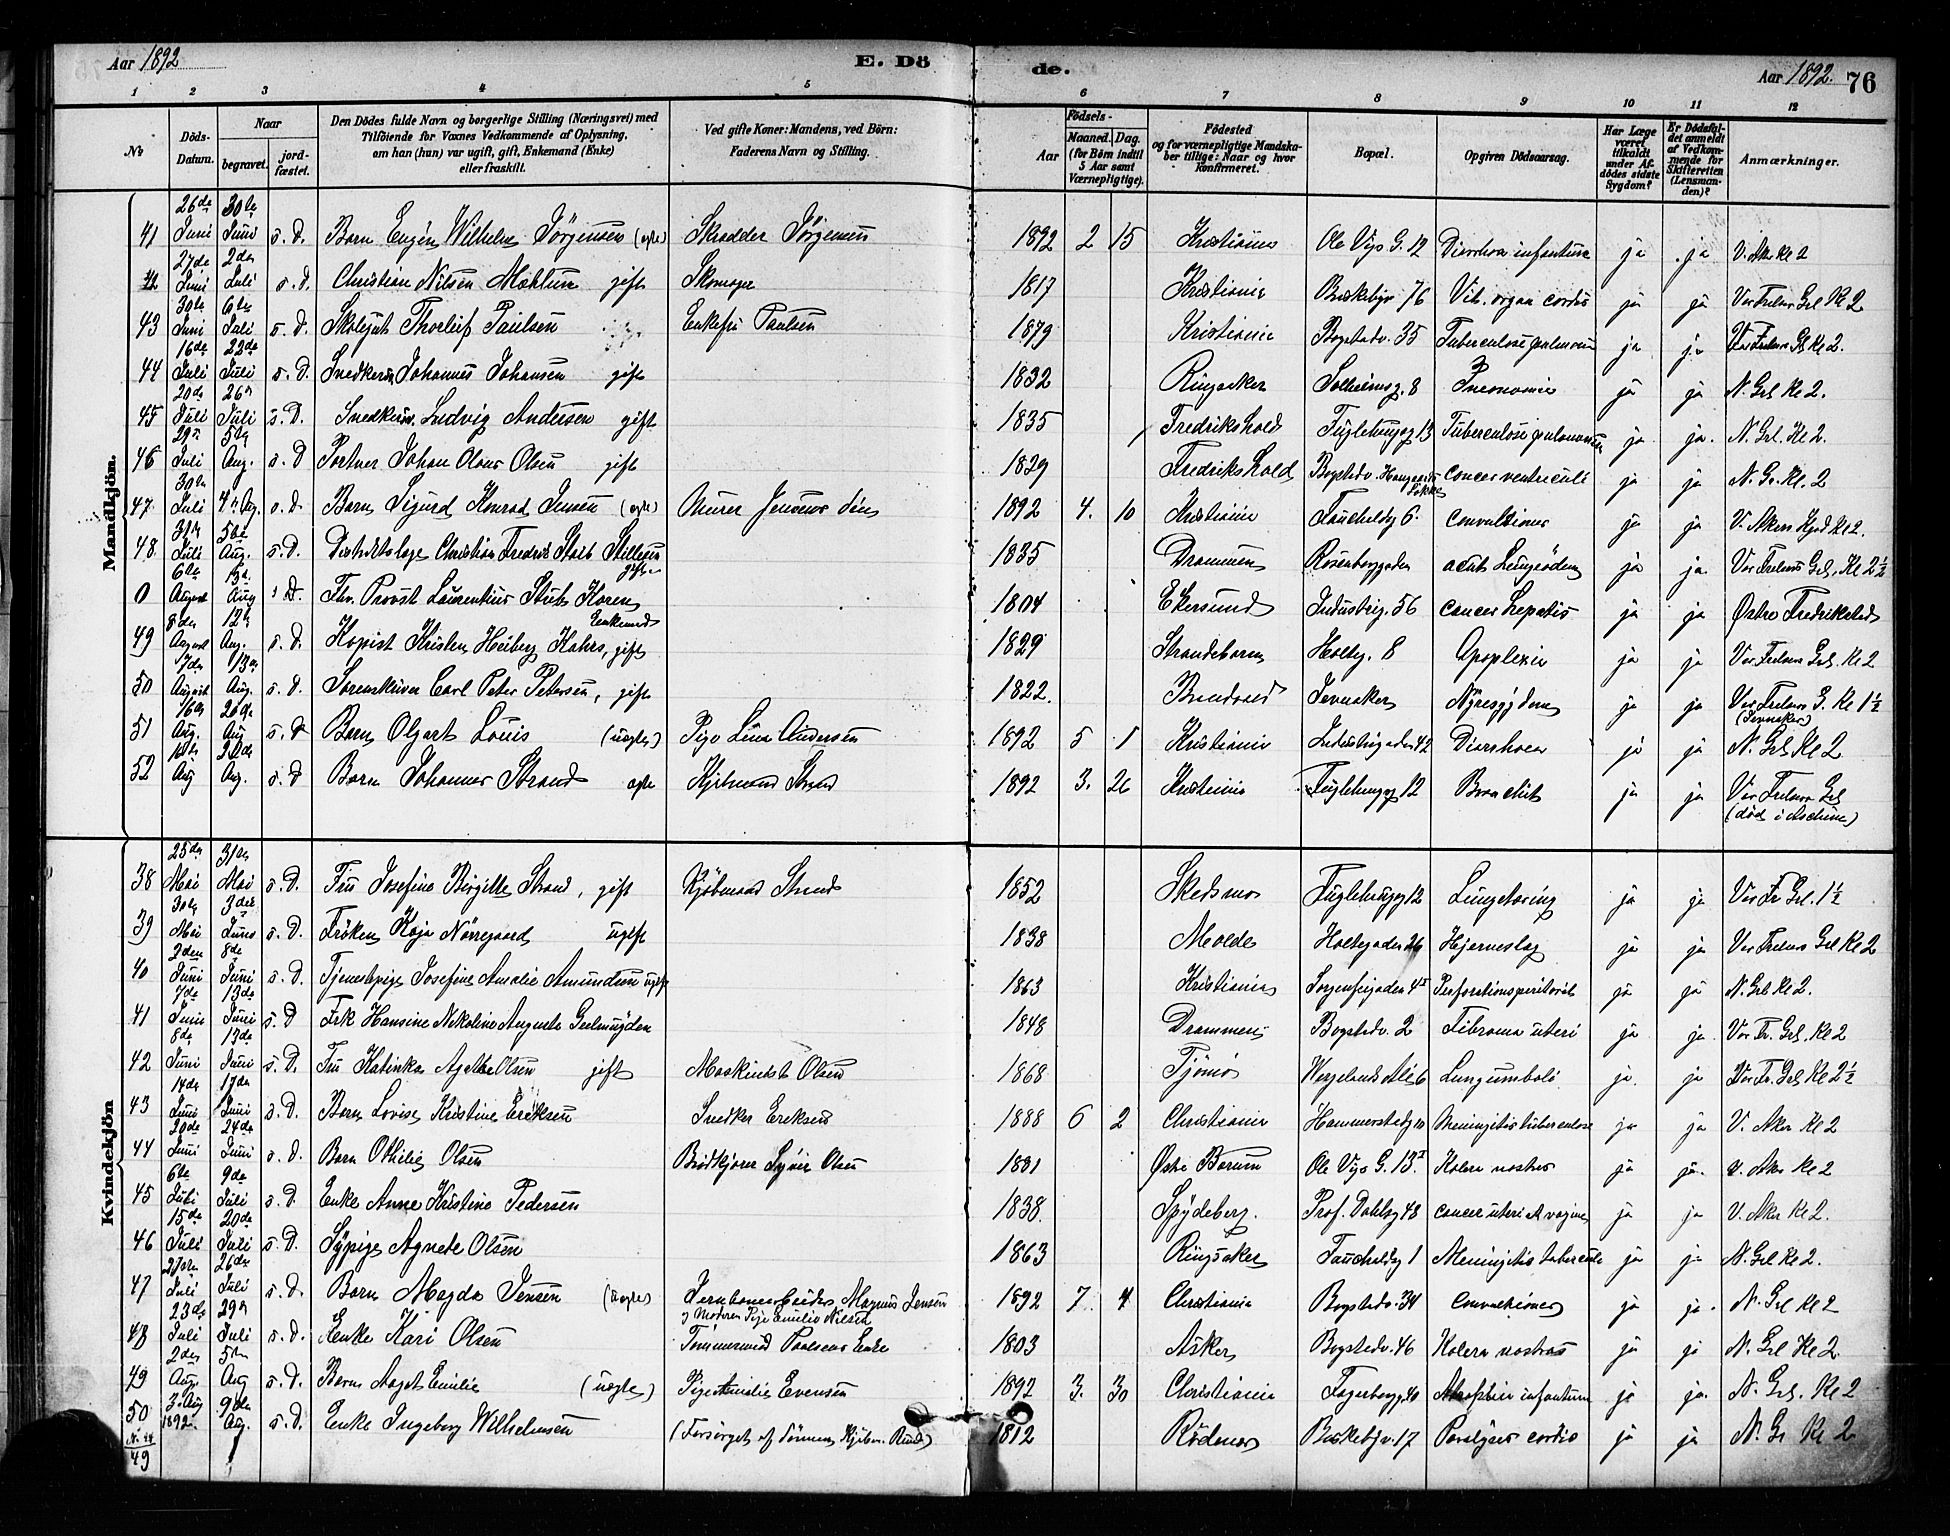 Aar 1892
E. Dö
de.
Aar 1892. 76
1 2 3 4 5 6 7 8 9 10 11 12
No
Döds-Datum.
Naar
begravet.
jord-fæstet.
Den Dödes fulde Navn og borgerlige Stilling (Næringsvei) med
Tilföiende for Voxnes Vedkommende af Oplysning,
om han (hun) var ugift, gift, Enkemand (Enke)
eller fraskilt.
Ved gifte Koner: Mandens, ved Börn:
Faderens Navn og Stilling.
Födsels-
Aar
Maaned.
Dag.
(for Börn indtil
5 Aar samt
Værnepligtige).
Födested
og for værnepligtige Mandska-
ber tillige: Naar og hvor
konfirmeret.
Bopæl.
Opgiven Dödsaarsag.
Har Læge
været
tilkaldt
under Af-
dödes sidste
Sygdom?
Er Dödsfal-
det anmeldt
af Vedkom-
mende for
Skifteretten
(Lensman-
den)?
Anmærkninger.
Mandkjön.
41 26de Juni 30te Juni s. D. Barn Eugén Wilhelm Jörgensen (ægte) Skrædder Jörgensen 1892 2 15 Kristiania Ole Vigs G. 12 Diarrhoea infantum ja ja V. Aker Kl 2
42 27de Juni 2den Juli s. D. Christian Nilsen Mæhlum gift Skomager 1817 Kristiania Briskebyv 76 Vit. organ cordis ja ja Vor Frelsers Grl Kl 2
43 30te Juni 6te Juli s. D. Skolegut Thorleif Paulsen Enkefru Paulsen 1879 Kristiania Bogstadv. 35 Tuberculose pulmonum ja ja Vor Frelsers Gl Kl 2.
44 16de Juli 22de Juli s. D. Snedkersv. Johannes Johansen gift 1832 Ringsaker Solheimsg. 8 Pneumonia ja ja N. Grl Kl 2.
45 20de Juli 26de Juli s. D. Snedkersv. Ludvig Andersen gift 1835 Fredrikshald Fuglehaugg 13 Tuberculose pulmonum ja ja. N. Grl. Kl 2.
46 29de Juli 5te Aug. s. D Portner Johan Olaus Olsen gift 1829 Fredrikshald Bogstadv. Haugaards Løkke Cancer ventriculi ja ja N. Gr. Kl. 2
47 30te Juli 4de Aug. s. D. Barn Sigurd Konrad Jensen (ægte) Murer Jensens sön 1892 4. 10 Kristiania Fauchaldsg 6. Convulsioner ja ja V. Akers Kgrd Kl 2.
48 31te Juli 5te Aug. s. D. Distriktslæge Christian Fredrik Stoltenberg gift 1835 Drammen Rosenborggaden acut Lungeödem ja ja Vor Frelsers Grl. Kl 2½
0 6te August 13de Aug s D. Fhv. Provst Laurentius Stub Koren Enkemand 1804 Ekersund Industrig. 56 Cancer hepatis ja ja Østre Fredrikstad
49 8de August 12te Aug. s. D. Kopist Kristen Heiberg Kahrs, gift 1829 Strandebarm Holteg. 8 Apoplexia ja ja Vor Frelsers Grl. Kl 2
50 7de August 13de Aug. s. D. Sorenskriver Carl Peter Petersen, gift 1822. Jevnaker Nyresygdom ja ja Vor Frelsers G. Kl 1½
(Jevnaker)
51 16de Aug. 20de Aug s. D Barn Olgart Louis (uægte) Pige Lina Andersen 1892 5 1 Kristiania Industrigaden 42 Diarrhoea ja ja N. Grl Kl 2
52 Aug 20de Aug. s. D Barn Johannes Strand ægte Kjöbmand Strand 1892 3. 26 Kristiania Fuglehaugg 12 Bronchit ja ja Vor Frelsers Grl
(död i Askim)
Kvindekjön
38 25de Mai 31te Mai s. D. Fru Josefine Birgitte Strand, gift Kjöbmand Strand 1852 Skedsmo Fuglehaugg 12 Lungetæring ja ja Vor Fr Grl. 1½
39 30te Mai 3die Juni s. D. Fröken Kaja Nörregaard ugift 1838 Molde Holtegaden 26 Hjerneslag ja ja Vor Frelsers Grl Kl 2
40 2den Juni 8de Juni s. D. Tjenestepige Josefine Amalie Amundsen ugift 1863 Kristiania Sorgenfrigaden 4 Perforationsperitonit ja ja N. Grl Kl 2.
41 7de Juni 13de Juni s. D Frk Hansine Nikoline Augusta Gulmoyden 1848 Drammen Bogstadv. 2 Fibroma uteri ja ja. Vor Fr. Grl. Kl 2
42 8de Juni 13de Juni s. D. Fru Katinka Agathe Olsen gift Maskinist Olsen 1868 Tjömö Wergelands Allé 6 Lungeemboli ja. ja Vor Fr. Grl Kl 2½
43 14de Juni 17de Juni s. D. Barn Lovise Kristine Eriksen Snedker Eriksen 1888 6 2 Christiania Hammerstadg 10 Meningitis tuberculose ja ja V. Aker Kl 2
44 20de Juni 24de Juni s. D. Barn Othilie Olsen Brödkjörer Syver Olsen 1881 Østre Bærum Ole Vigs G. 13 Kolera nostras ja ja. V. Aker Kl 2
45 6te Juli 9de Juli s. D. Enke Anne Kristine Pedersen 1838. Spydeberg. Prof. Dahlsg 48 Cancer uteri et vagina ja ja V. Aker Kl 2.
46 15de Juli 20de Juli s. D. Sypige Agnete Olsen 1863 Ringsaker Fauchaldsg 1 Meningitis tubercul ja ja N. Grl Kl 2.
47 Juli 26de Juli s. D. Barn Magda Jensen (uægte) Jernbanearbeider Magnus Jensen
og Moderen Pige Emilie Nilsen 1892 7. 4 Christiania Bogstadv. 34 Convulsioner ja ja. N. Grl Kl 2
48 23de Juli 29de Juli s. D. Enke Kari Olsen Tömmermand Paulsens Enke 1803 Asker Bogstadv. 46 Kolera nostras ja ja N. Grl Kl 2
49 2den Aug. 5te Aug s. D. Barn Aagot Emilie (uægte) Pige Amalie Evensen 1892 3. 30 Christiania Fagerborgg. Atrophia infantum ja ja. N. Grl. Kl 2
50 3. Aug 1892 9de Aug. s. D. Enke Ingeborg Wilhelmsen (Forsörget af Sönnen Kjöbm. ) 1812 Rödenes Briskebyv. 17 Paralysis cordis ja ja N. Gr Kl 2
49